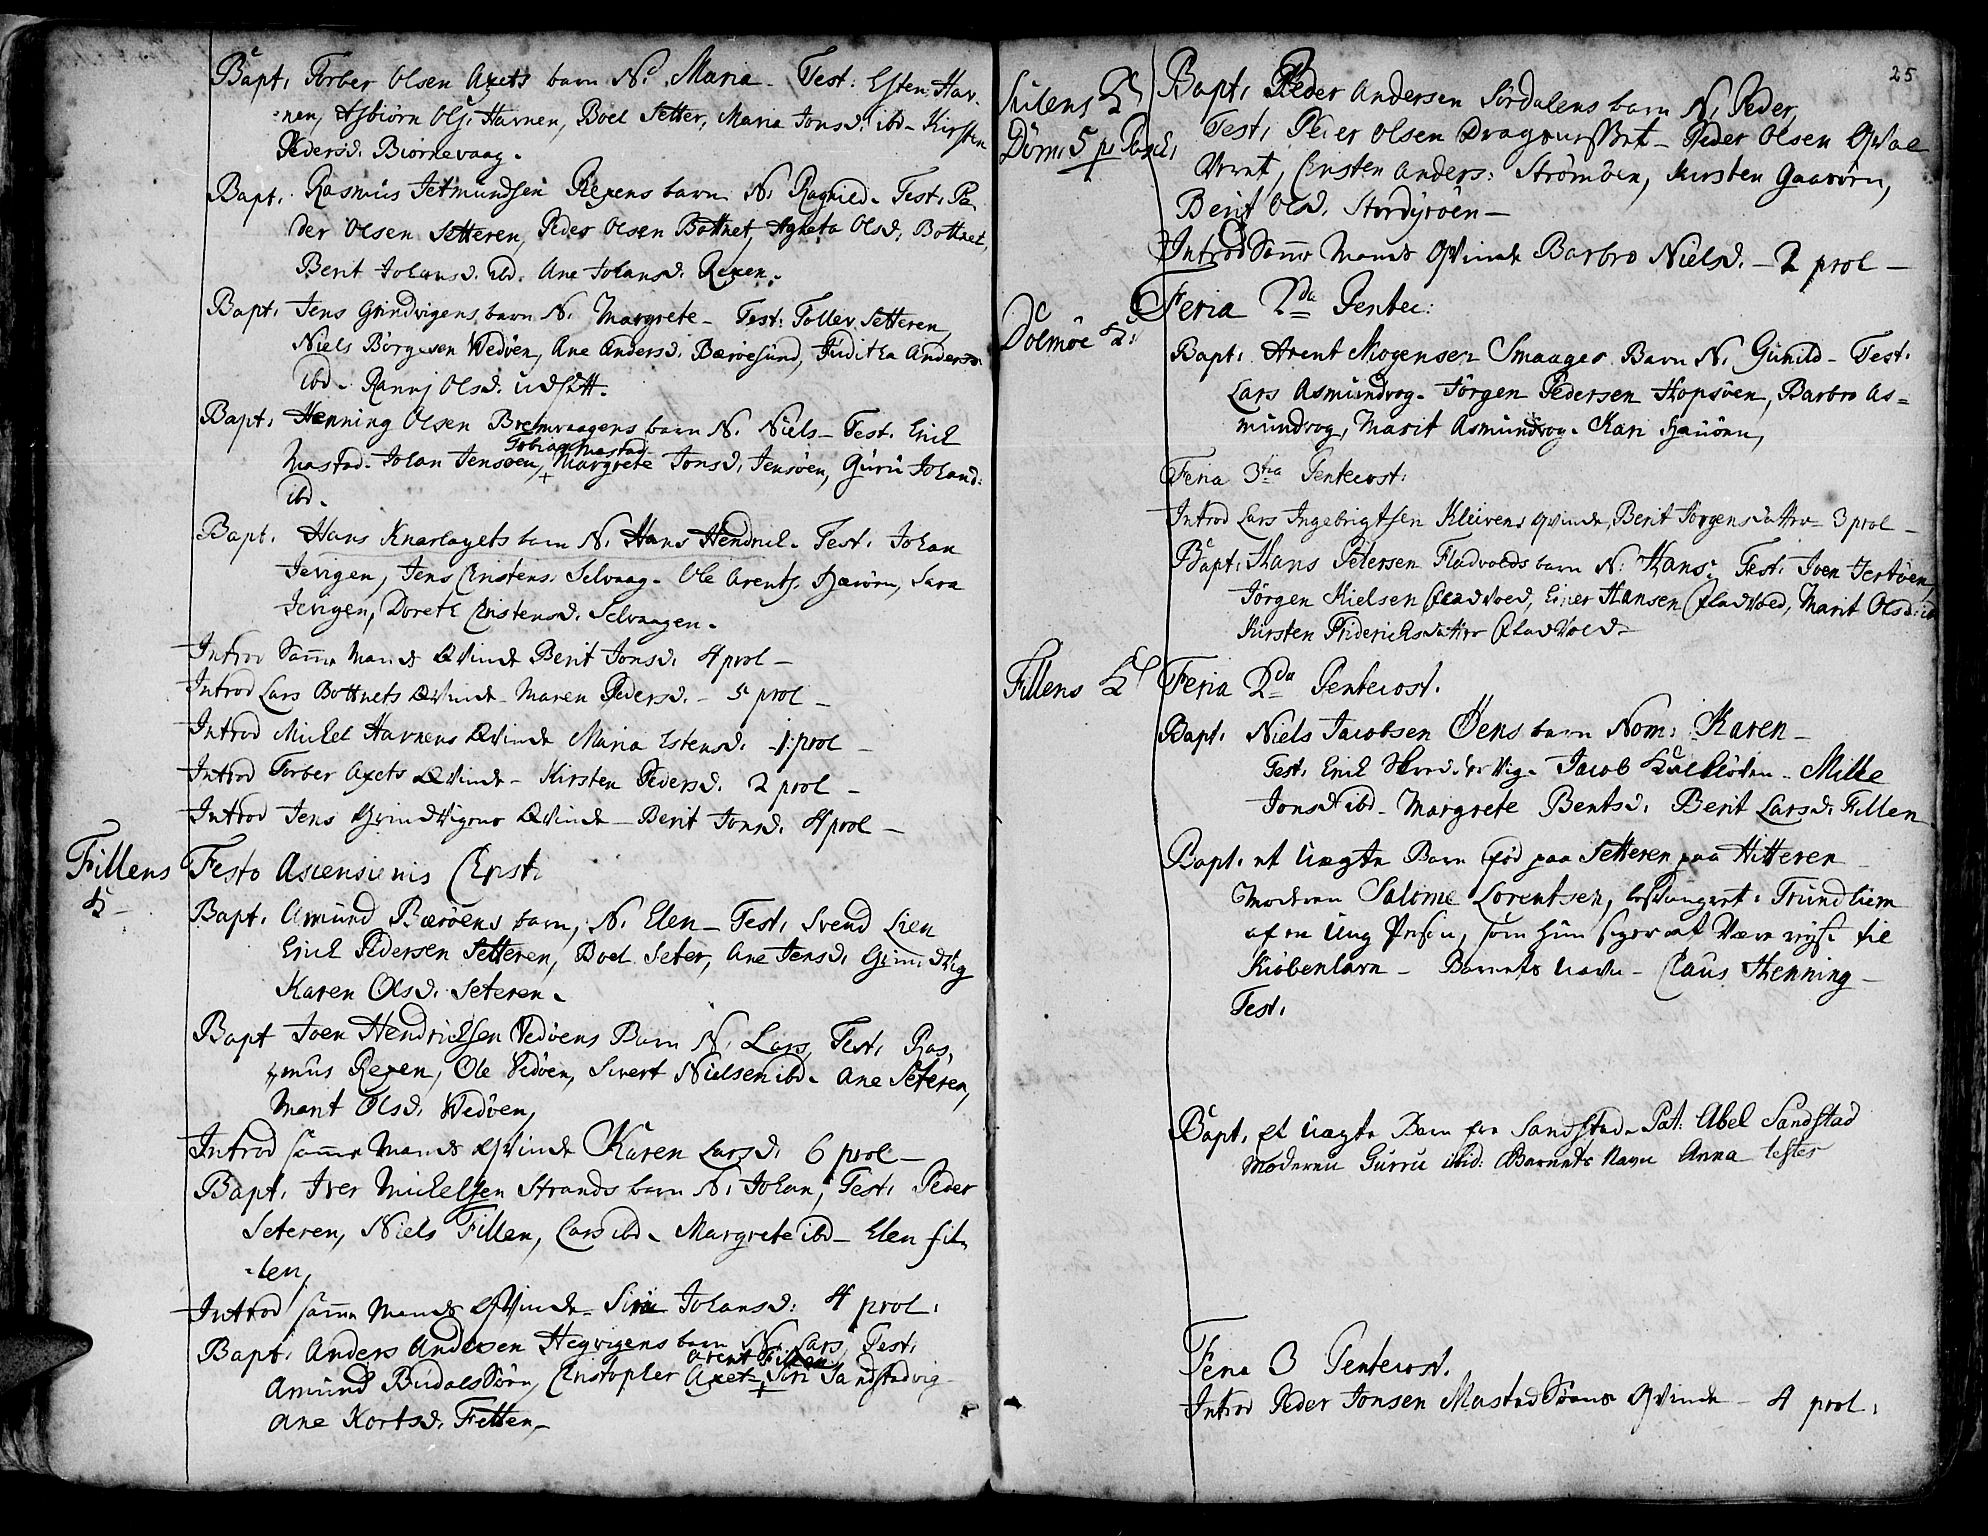 Bapt. Torber Olsen Axets barn N. Maria. Test: Esten Hav-
nen, Asbiörn Ols. Havnen, Boel Setter, Maria Jonsd. ibd. Kirsten
Pedersd. Biørnevaag.
Bapt. Rasmus Jetmundsen Rexens barn N. Ragnild. Test. Pe-
der Olsen Setteren, Peder Olsen Bottnet, Agneta Olsd. Bottnet,
Berit Johansd. ibd. Ane Johansd. Rexen.
Bapt. Jens Grindvigens barn N. Margrete. Test: Toller Setteren,
Niels Börgesen Wedöen, Ane Andersd. Bæröesund, Juditha Andersd.
ibd. Ranni Olsd. Udsætt.
Bapt. Henning Olsen Bremvaagens barn N. Niels. Test. Erich
Tobias Mastad
Mastad. Johan Jensöen, Margrete Jonsd. Jensöen, Guru Johansd:
ibd.
Bapt. Hans Knarlagets barn N. Hans Hendrich. Test. Johan
Jevigen, Jens Christens. Selvaag. Ole Arents. Hærörn, Sara
Jevigen, Doreth Christensd. Selvaagen.
Introd Samme Mands Qvinde Berit Jonsd. 4 prol
Introd Lars Bottnets Qvinde Maren Pedersd. 5 prol
Introd Michel Havnens Qvinde Maria Estensd. 1 prol
Introd Torber Axets Qvinde Kirsten Pedersd. 2 prol
Introd Jens Grindvigens Qvinde Berit Jonsd. 4 prol
Fillens Festo Ascensionis Christi
K
Bapt. Amund Bæröens barn, N. Elen. Test. Svend Lien
Erich Pedersen Setteren, Boel Seter, Ane Jensd. Grindvig
Karen Olsd. Seteren.
Bapt Joen Hendrichsen Vedöens Barn N. Lars, Test. Ras-
mus Rexen, Ole Vedöen, Sivert Nielsen ibd. Ane Seteren,
Marit Olsd. Wedöen,
Introd samme Mands Qvinde Karen Larsd. 6 prol
Bapt. Iver Michelsen Strands barn N. Johan, Test. Peder
Seteren, Niels Fillen, Lars ibd. Margrete ibd. Elen Fil-
len,
Introd samme Mands Qvinde Siri Johansd: 4 prol.
Bapt. Anders Andersen Hegvigens barn N. Lars, Test.
Arent Fillen
Amund Budalsöörn, Christopher Axet, Siri Sandstadvig
Ane Kortsd. Fetten
25
Sulens K
Dom. 5 p. Pasch.
Bapt. Peder Andersen Sördalens barn N. Peder,
Test. Peder Olsen Peder Olsen
Christen Anders: Strömöen, Kirsten Gaasörn,
Berit Olsd. Stordyröen
Introd Samme Mands Qvinde Barbro Nielsd. 2 prol
Dolmöe K: Feria 2da Pentec:
Bapt. Arent Mogensen Smaages Barn N. Gunild. Test.
Lars Asmundvog. Jörgen Pedersen Hopsöen, Barbro As=
mundvog, Marit Asmundvog. Kari
Feria 3tia Pentecost.
Introd Lars Ingebrigtsen Kleivens Qvinde, Berit Jörgensdatter 3 prol
Bapt. Hans Petersen Fladvolds barn N. Hans. Test. Joen Jertöen,
Jörgen Nielsen Fladvold, Einer Hansen Fladvold, Marit Olsd: ibd
Kirsten Friderichsdatter Fladvold
Fillens K Feria 2da Pentecost.
Bapt. Niels Jacobsen Öens barn Nom: Karen
Test. Erich Jacob Milke
Jonsd ibd. Margrete Bentsd. Berit Larsd. Fillen
Bapt. et Uægte Barn fød paa Setteren paa Hitteren
Moderen Salome Lorentsen, besvangret i Trundhiem
af en Ung Person, som hun siger at Være reyst til
Kiöbenhavn. Barnets navn. Claus Henning
Test.
Bapt. et Uægte Barn fra Sandstad. Pat. Abel Sandstad
Moderen Gurru ibid: Barnets Navn Anna tester
Feria 3 Pentecost.
Introd Peder Jonsen Mastadöens Qvinde 4 prol.